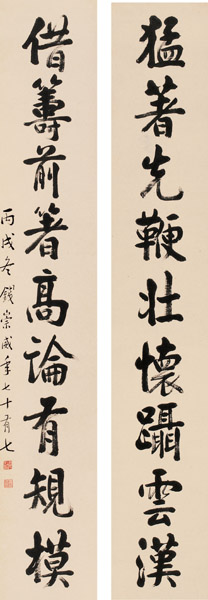 猛著先鞭壯懷躡雲漢
借籌前箸高論有規模
丙戌冬錢崇威年七十有七